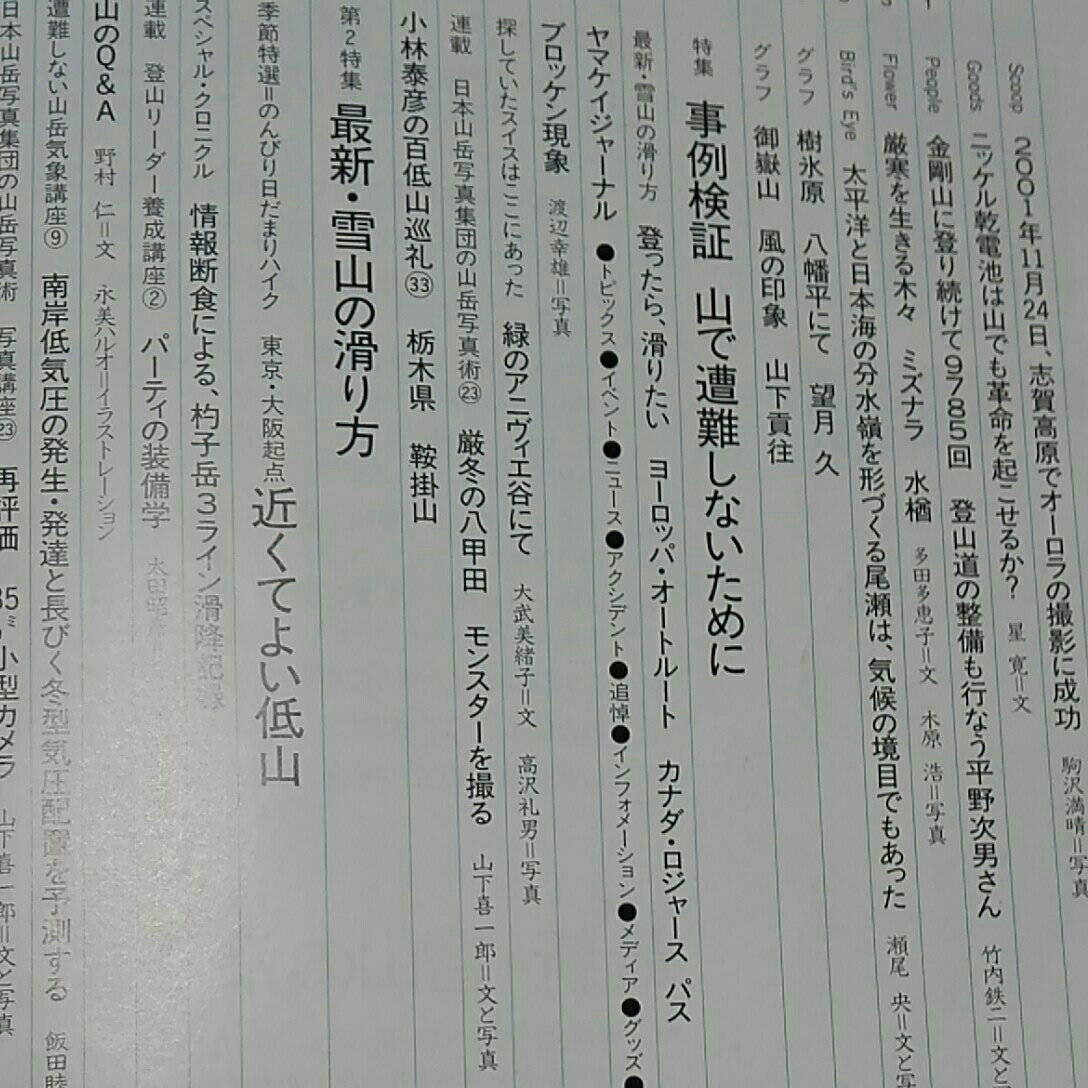 Scoop 2001年11月24日、志賀高原でオーロラの撮影に成功 駒沢満晴＝写真
Goods ニッケル乾電池は山でも革命を起こせるか？ 星 寛＝文
People 金剛山に登り続けて9785回 登山道の整備も行なう平野次男さん 竹内鉄二＝文と
Flower 厳寒を生きる木々 ミズナラ 水楢 多田多恵子＝文 木原 浩＝写真
Bird's Eye 太平洋と日本海の分水嶺を形づくる尾瀬は、気候の境目でもあった 瀬尾 央＝文と写
グラフ 樹氷原 八幡平にて 望月 久
グラフ 御嶽山 風の印象 山下貢往
特集 事例検証 山で遭難しないために
最新・雪山の滑り方 登ったら、滑りたい ヨーロッパ・オートルート カナダ・ロジャース パス
ヤマケイジャーナル ●トピックス●イベント●ニュース●アクシデント●追悼●インフォメーション●メディア●グッズ●
ブロッケン現象 渡辺幸雄＝写真
探していたスイスはここにあった 緑のアニヴィエ谷にて 大武美緒子＝文 高沢礼男＝写真
連載 日本山岳写真集団の山岳写真術㉓ 厳冬の八甲田 モンスターを撮る 山下喜一郎＝文と写真
小林泰彦の百低山巡礼㉝ 栃木県 鞍掛山
第2特集 最新・雪山の滑り方
季節特選＝のんびり日だまりハイク 東京・大阪起点 近くてよい低山
スペシャル・クロニクル 情報断食による、杓子岳3ライン滑降記録
連載 登山リーダー養成講座② パーティの装備学
山のQ&A 野村 仁＝文 永美ハルオ＝イラストレーション
遭難しない山岳気象講座⑨ 南岸低気圧の発生・発達と長びく冬型気圧配置を予測する 飯田睦
日本山岳写真集団の山岳写真術 写真講座㉓ 再評価 35ミリ小型カメラ 山下喜一郎＝文と写真